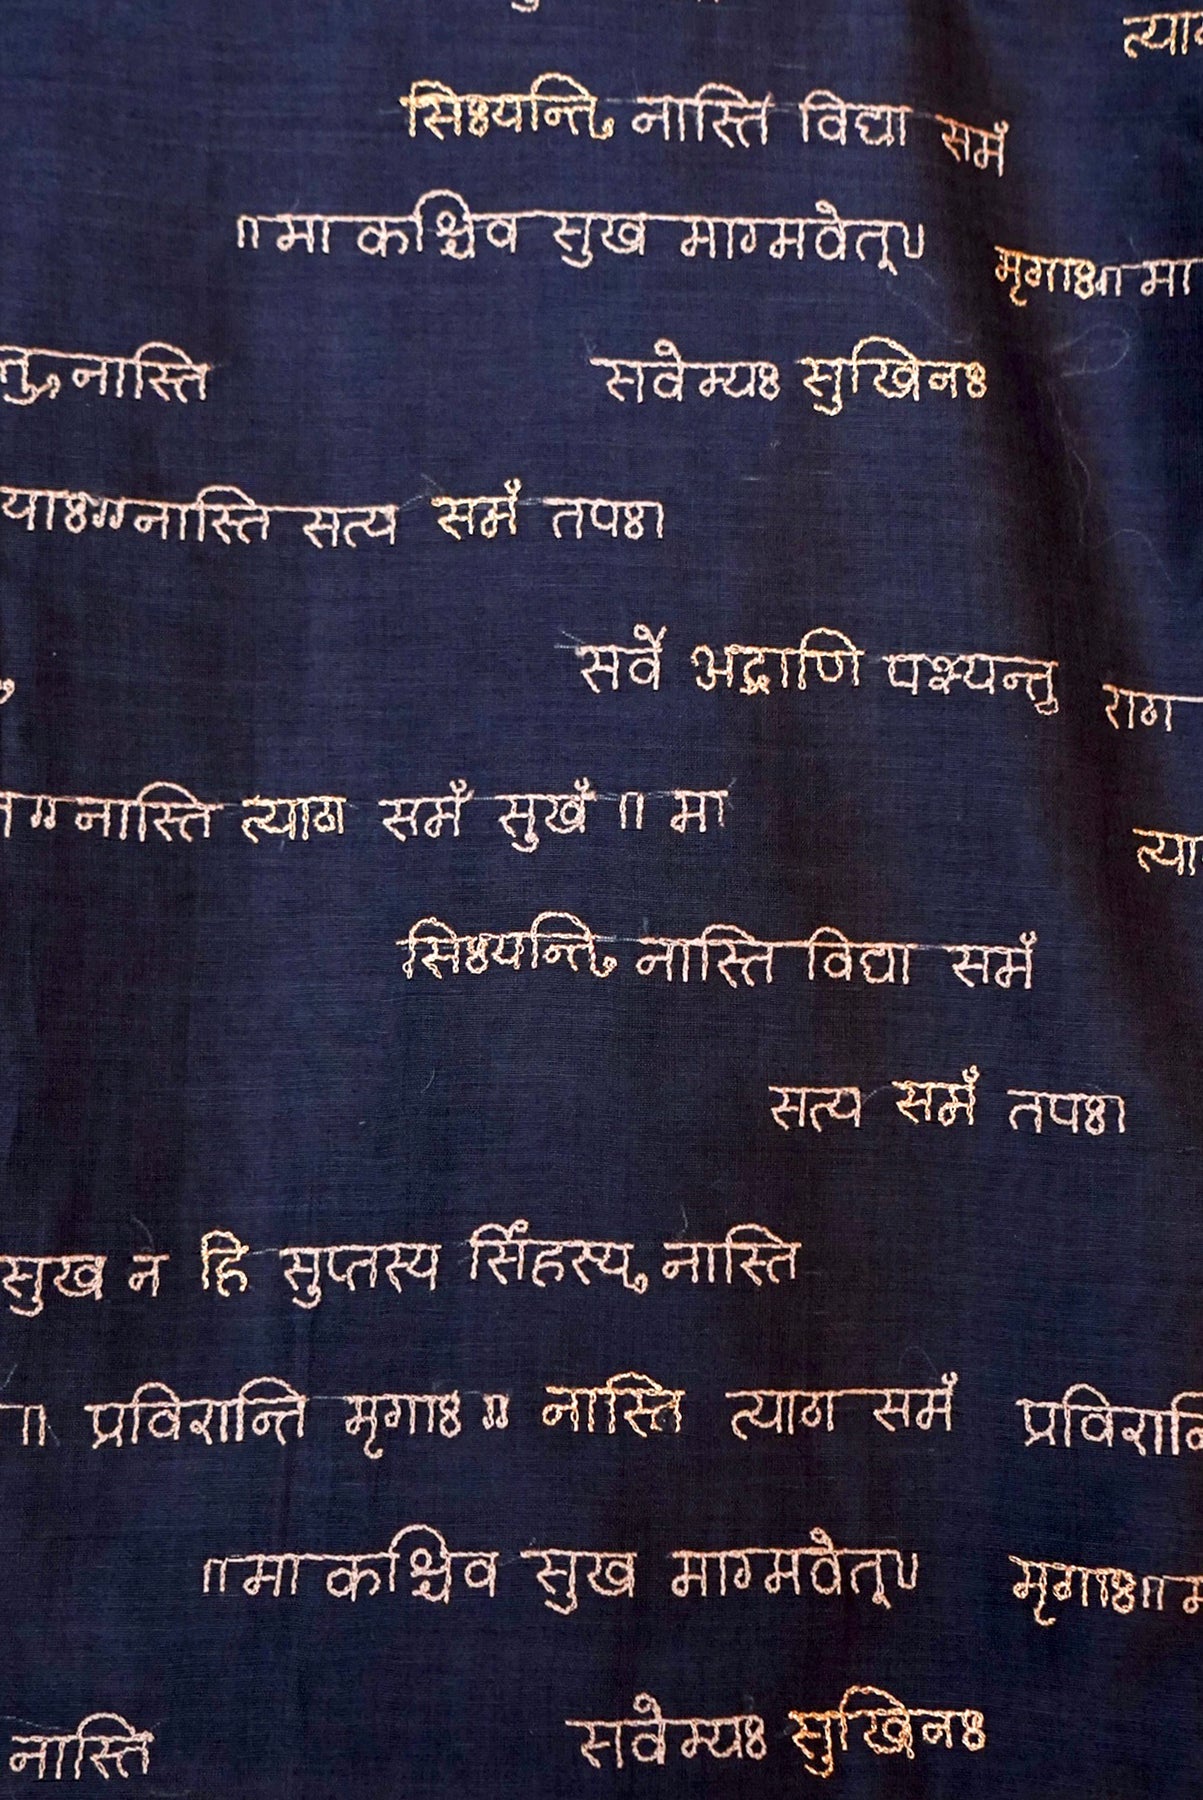 त्या
सिःयन्ति, नास्ति विद्या समँ
॥मा कश्चिव सुख माग्मवेत्॥
मृगाः॥ मा
तु, नास्ति
सवेम्यः सुखिनः
याः॥नास्ति सत्य समँ तपः।
सर्वे भद्राणि पश्यन्तु
राग
॥नास्ति त्याग समँ सुखँ ॥ मा
त्या
सिःयन्ति, नास्ति विद्या समँ
सत्य समँ तपः।
सुख न हि सुप्तस्य सिंहस्य, नास्ति
॥ प्रविशन्ति मृगाः॥ नास्ति त्याग समँ
॥मा कश्चिव सुख माग्मवेत्॥
मृगाः॥
नास्ति
सवेम्यः सुखिनः